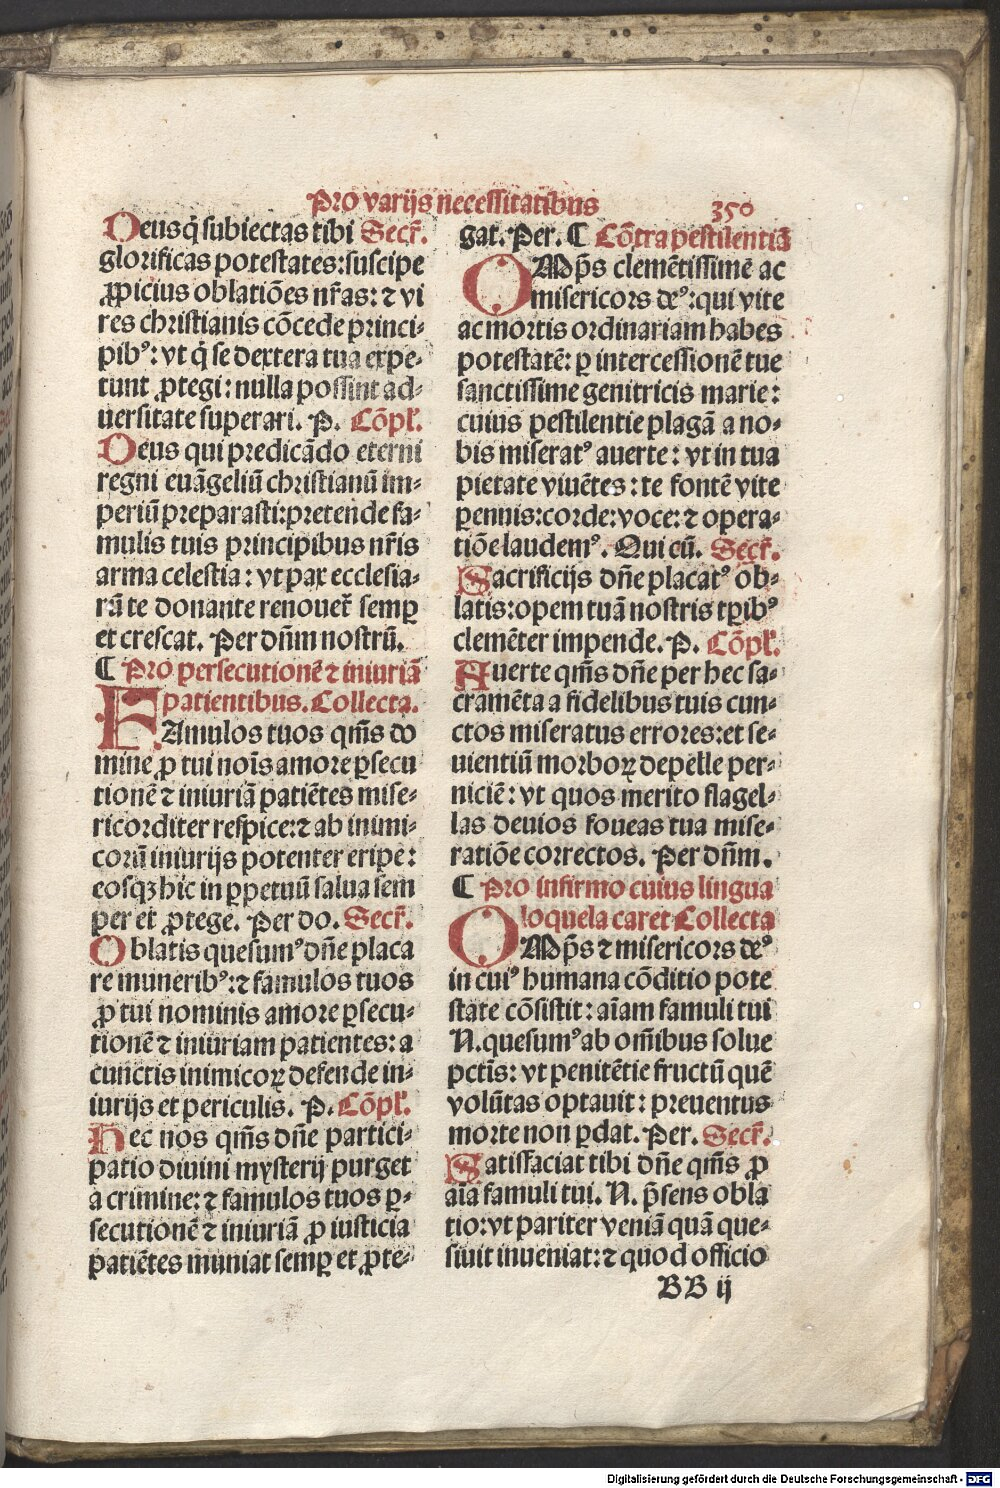 Pro varijs necessitatibus
350
Deus q̇ subiectas tibi Secr̄.
glorificas potestates: suscipe
ꝓpicius oblatiōes nr̄as: ⁊ vi
res christianis cōcede princi⸗
pibꝰ: vt q̇ se dextera tua expe⸗
tunt ꝓtegi: nulla possint ad⸗
uersitate superari. P. Cōpl̄.
Deus qui predicādo eterni
regni euāgeliū christianū im⸗
periū preparasti: pretende fa⸗
mulis tuis principibus nr̄is
arma celestia: vt pax ecclesia⸗
rū te donante renouet̄ semꝑ
et crescat. Per dn̄m nostrū.
¶ Pro persecutionē ⁊ iniuriā
patientibus. Collecta.
FAmulos tuos qm̄s do
mine ꝓ tui noīs amore ꝑsecu
tionē ⁊ iniuriā patiētes mise⸗
ricorditer respice: ⁊ ab inimi⸗
corū iniurijs potenter eripe:
eosqꝫ hic in ꝑpetuū salua sem
per et ꝓtege. Per do. Secr̄.
Oblatis quesumꝰ dn̄e placa
re muneribꝰ: ⁊ famulos tuos
ꝓ tui nominis amore ꝑsecu⸗
tionē ⁊ iniuriam patientes: a
cunctis inimicoꝝ defende in⸗
iurijs et periculis. P. Cōpl̄.
Hec nos qm̄s dn̄e partici⸗
patio diuini mysterij purget
a crimine: ⁊ famulos tuos ꝑ⸗
secutionē ⁊ iniuriā ꝓ iusticia
patiētes muniat semꝑ et ꝓte⸗
gat. Per. ¶ Cōtra pestilentiā
OMp̄s clemētissime ac
misericors deꝰ: qui vite
ac mortis ordinariam habes
potestatē: ꝑ intercessionē tue
sanctissime genitricis marie:
cuius pestilentie plagā a no⸗
bis miseratꝰ auerte: vt in tua
pietate viuētes: te fontē vite
ꝑennis: corde: voce: ⁊ opera⸗
tiōe laudemꝰ. Qui cū. Secr̄.
Sacrificijs dn̄e placatꝰ ob⸗
latis: opem tuā nostris tꝑibꝰ
clemēter impende. P. Cōpl̄.
Auerte qm̄s dn̄e per hec sa⸗
cramēta a fidelibus tuis cun⸗
ctos miseratus errores: et se⸗
uientiū morboꝝ depelle per⸗
niciē: vt quos merito flagel⸗
las deuios foueas tua mise⸗
ratiōe correctos. Per dn̄m.
¶ Pro infirmo cuius lingua
loquela caret Collecta
OMp̄s ⁊ misericors deꝰ
in cuiꝰ humana cōditio pote
state cōsistit: aīam famuli tui
N. quesumꝰ ab oīnibus solue
pctīs: vt penitētie fructū quē
volūtas optauit: preuentus
morte non ꝑdat. Per. Secr̄.
Satisfaciat tibi dn̄e qm̄s ꝓ
aīa famuli tui. N. p̄sens obla
tio: vt pariter veniā quā que⸗
siuit inueniat: ⁊ quod officio
BB ij
Digitalisierung gefördert durch die Deutsche Forschungsgemeinschaft - DFG